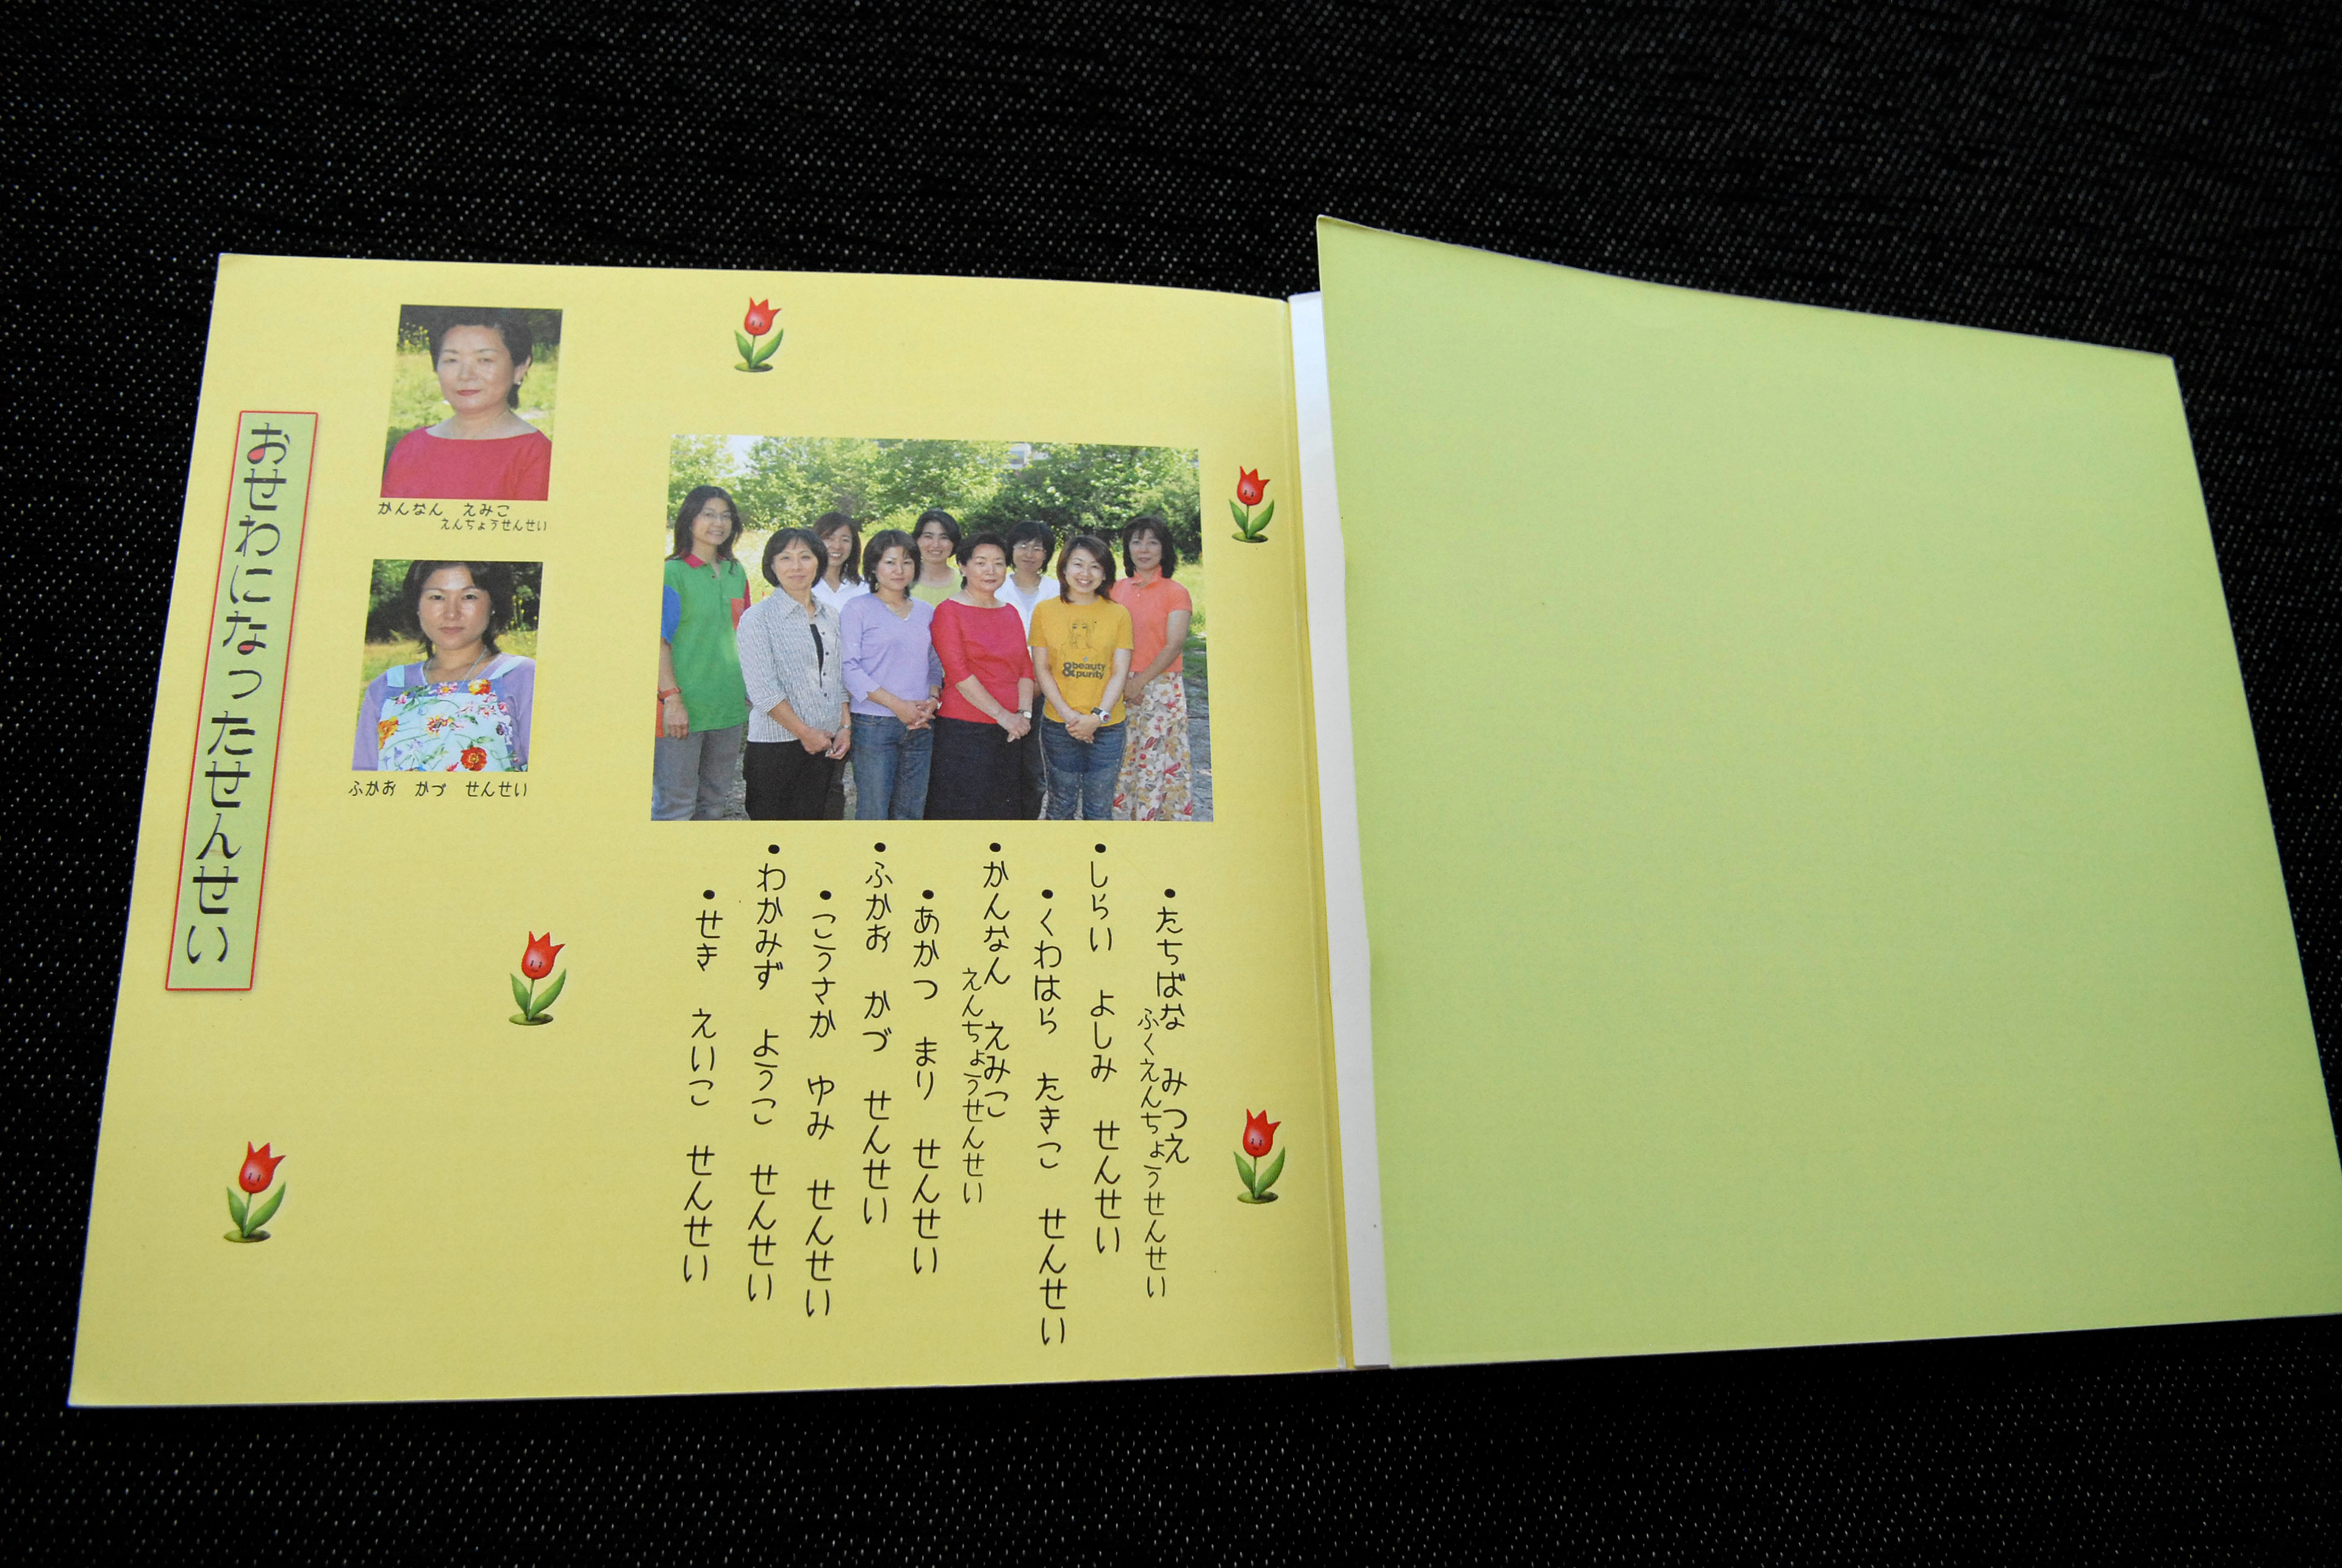 おせわになったせんせい
かんなん えみこ
えんちょうせんせい
ふかお かづ せんせい
&beauty
&purity
・たちばな みつえ
ふくえんちょうせんせい
・しらい よしみ せんせい
・くわはら たきこ せんせい
・かんなん えみこ
えんちょうせんせい
・あかつ まり せんせい
・ふかお かづ せんせい
・こうさか ゆみ せんせい
・わかみず ようこ せんせい
・せき えいこ せんせい